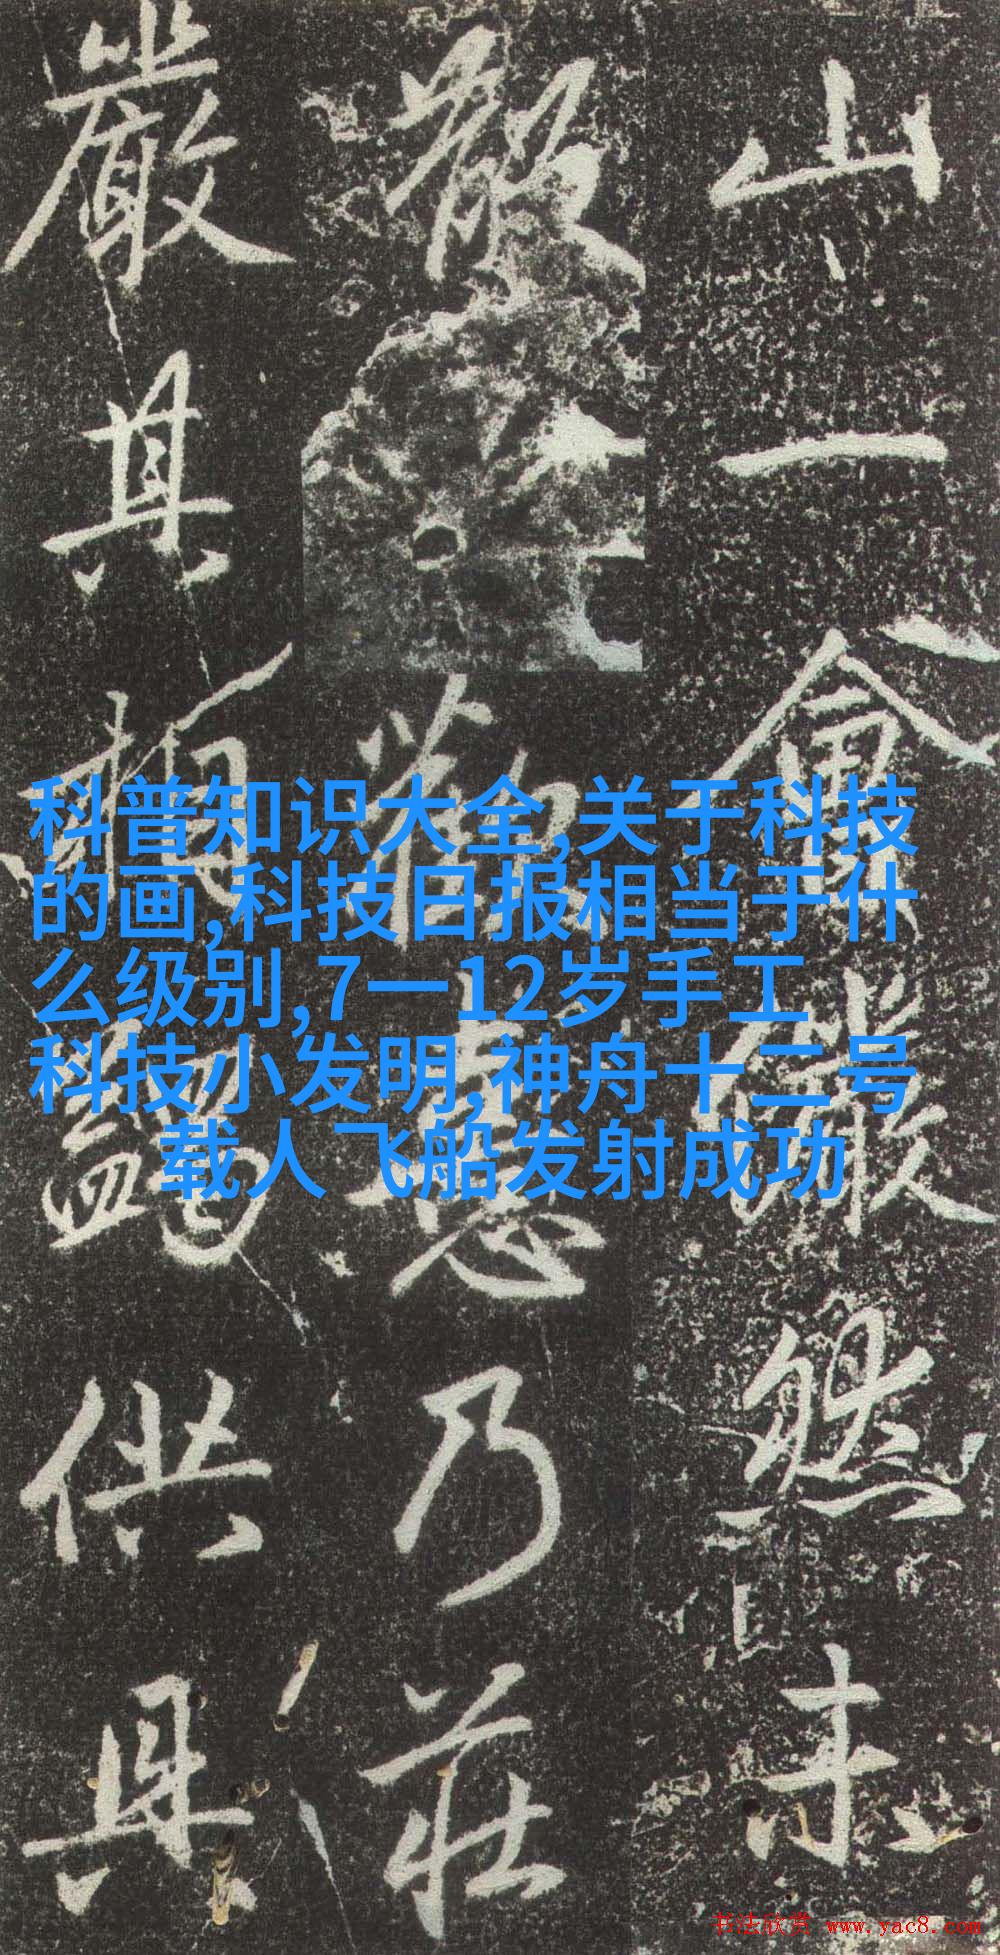 科普知识大全,关于科技
的画,科技日报相当于什
么级别,7一12岁手工
科技小发明,神舟十二号
载人飞船发射成功
山一會儼然未
散乃莊
嚴其供具
书法欣赏 www.yac8.com